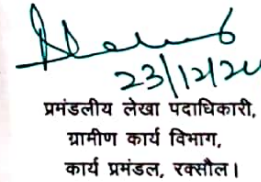 23/12/20
प्रमंडलीय लेखा पदाधिकारी,
ग्रामीण कार्य विभाग,
कार्य प्रमंडल, रक्सौल।